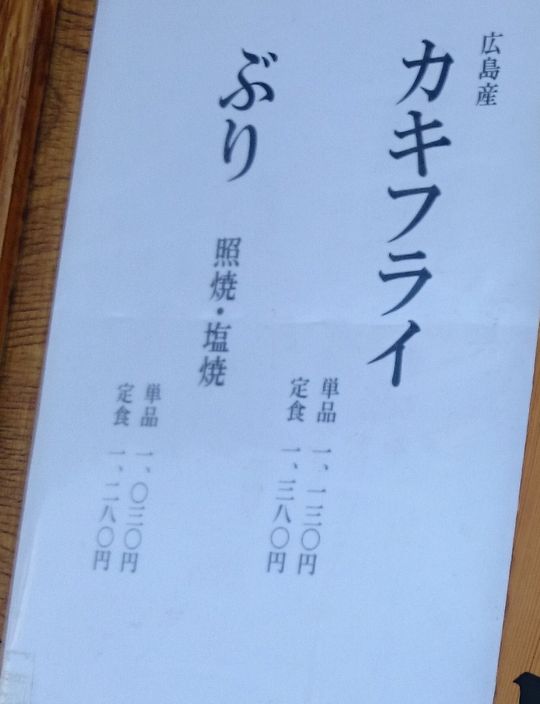 広島産
カキフライ
単品 一、一三〇円
定食 一、三八〇円
ぶり 照焼・塩焼
単品 一、〇三〇円
定食 一、二八〇円